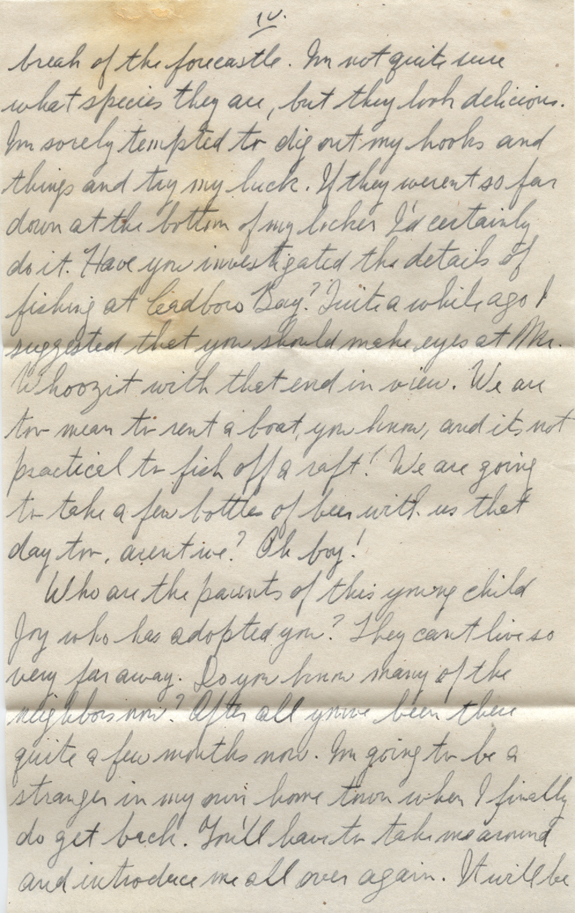 IV.
break of the forecastle. Im not quite sure
what species they are, but they look delicious.
Im sorely tempted to dig out my hooks and
things and try my luck. If they werent so far
down at the bottom of my locker I'd certainly
do it. Have you investigated the details of
fishing at Cadboro Bay? Quite a while ago I
suggested that you should make eyes at Mr.
Whoozit with that end in view. We are
too mean to rent a boat, you know, and its not
practical to fish off a raft! We are going
to take a few bottles of beer with us that
day too, arent we? Oh boy!
Who are the parents of this young child
Joy who has adopted you? They cant live so
very far away. Do you know many of the
neighbors now? After all youve been there
quite a few months now. Im going to be a
stranger in my own home town when I finally
do get back. You'll have to take me around
and introduce me all over again. It will be